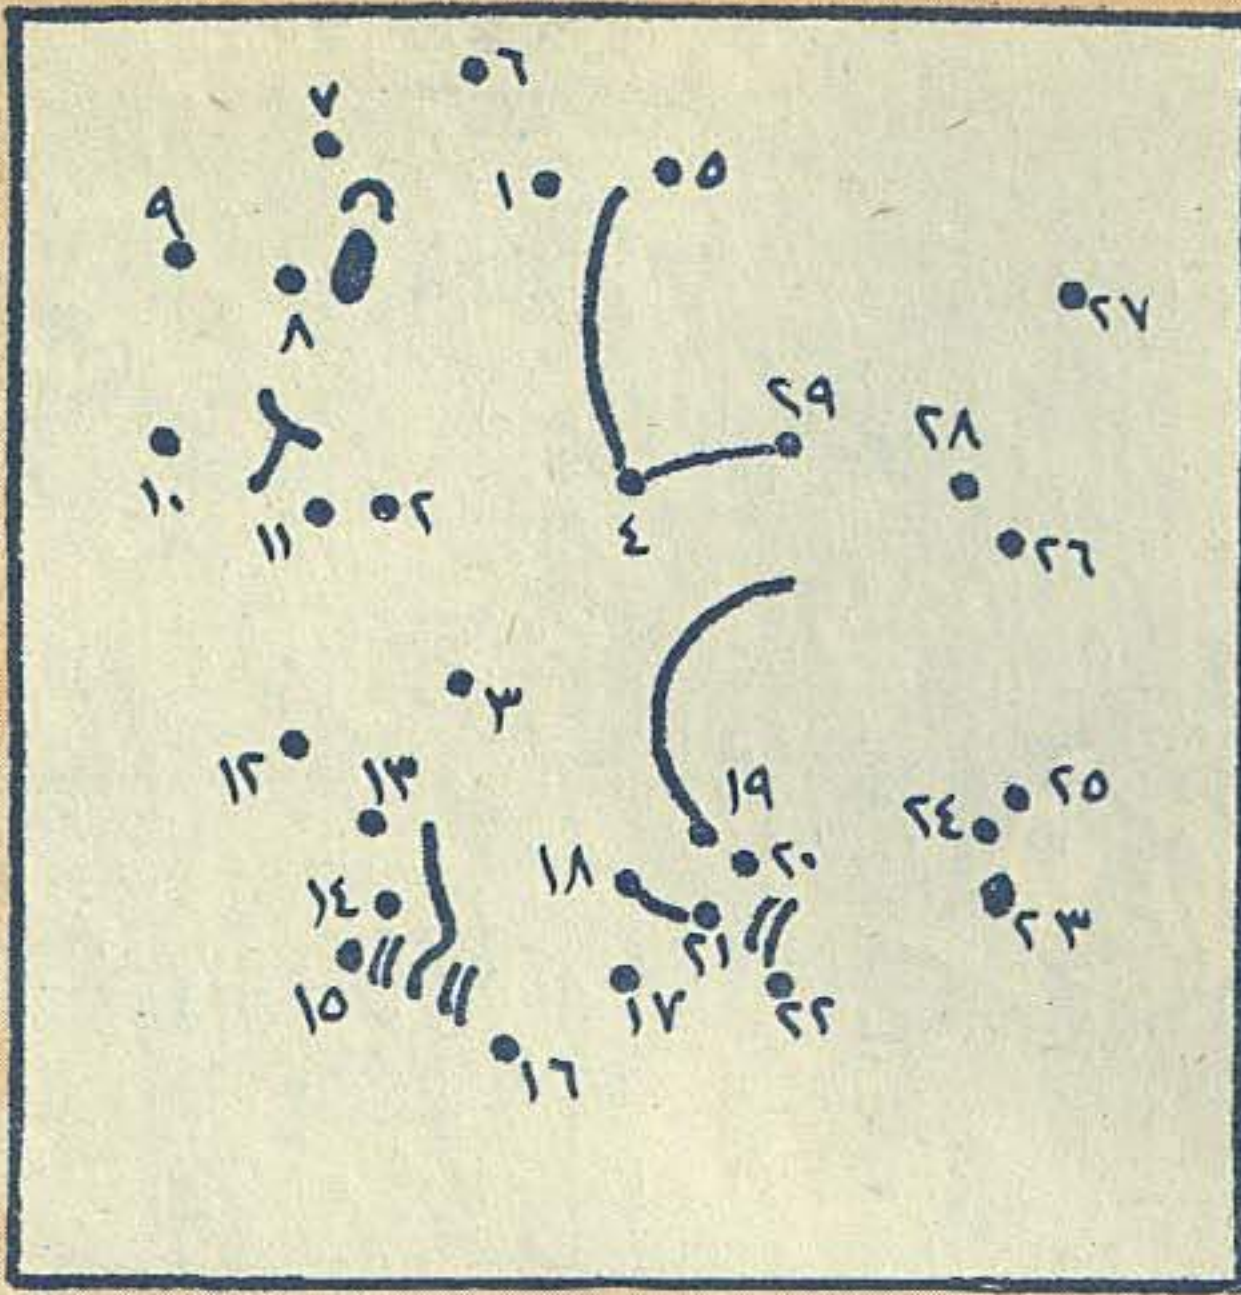 ٦
٧
١
٥
٩
٨
٢٧
٢٩
٢٨
١٠
١١
٢
٤
٢٦
٣
١٢
١٣
١٩
٢٥
٢٤
١٨
٢٠
١٤
٢٣
٢١
١٥
١٧
٢٢
١٦